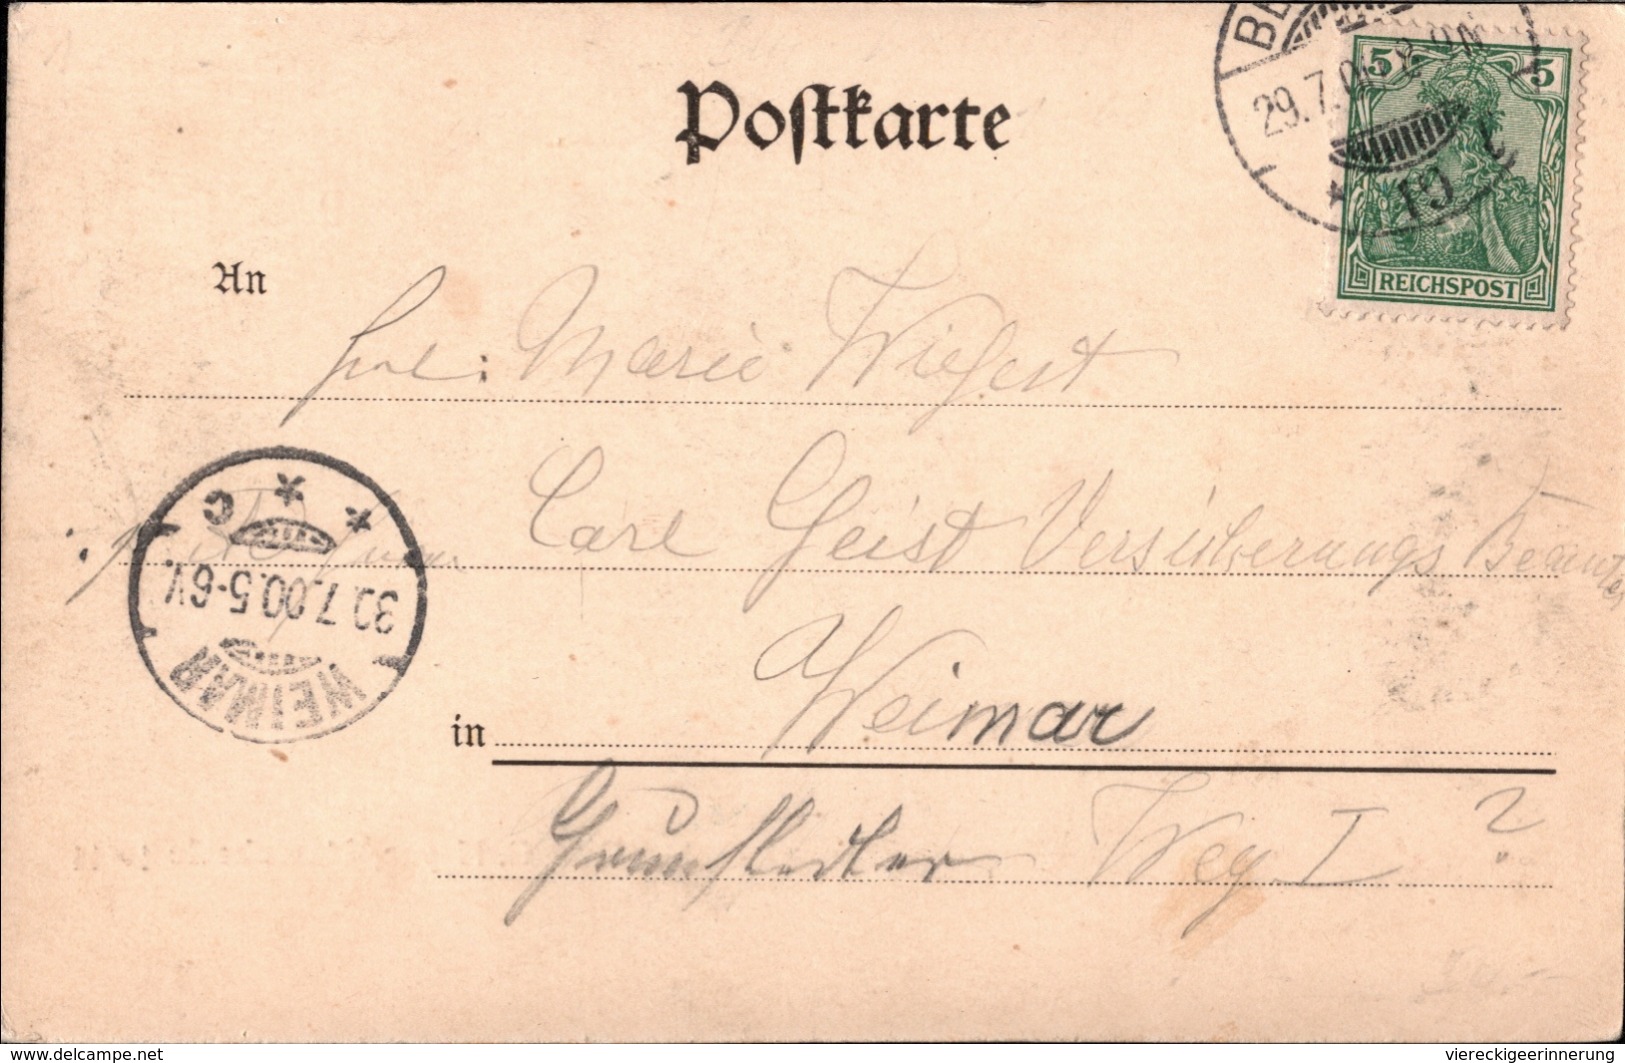 Postkarte
29.7.0
19
5 5
REICHSPOST
An
Frl: Marie
Carl Geist Versicherungs Beamter
C
30.7.00.5-6V.
WEIMAR
in Weimar
Weg I ?
www.delcampe.net
viereckigeerinnerung